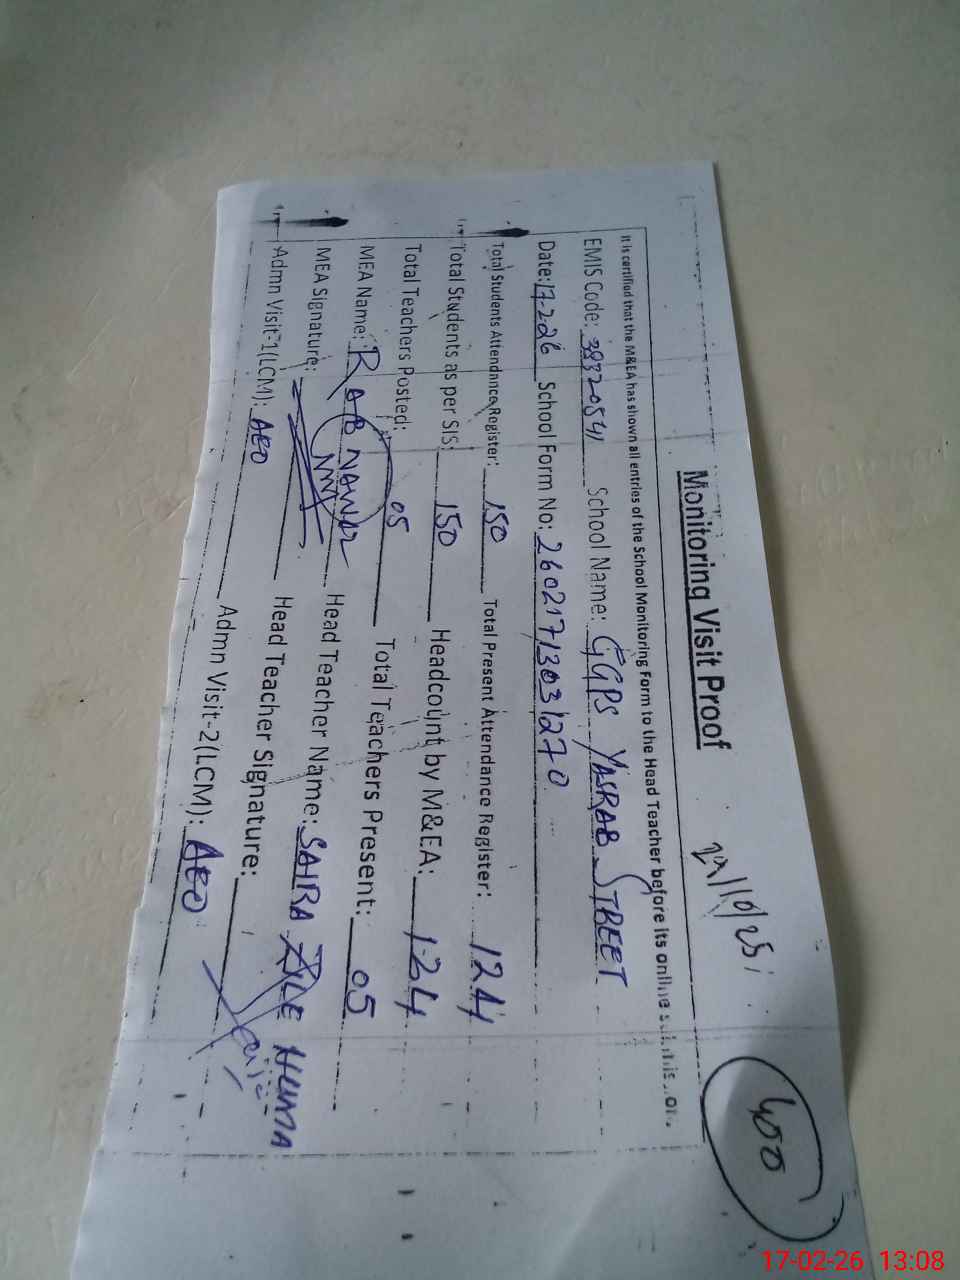 Monitoring Visit Proof
400
It is certified that the M&EA has shown all entries of the School Monitoring Form to the Head Teacher before its online
EMIS Code: 38320541 School Name: GGPS YASRAB STREET
Date: 17-2-26 School Form No: 26021713031270
Total Students Attendance Register: 150 Total Present Attendance Register: 124
Total Students as per SIS: 150 Headcount by M&EA: 124
Total Teachers Posted: 05 Total Teachers Present: 05
MEA Name: RAB NAWAZ Head Teacher Name: SAIRA ZILE HUMA
MEA Signature: Head Teacher Signature:
Admn Visit-1(LCM): AEO Admn Visit-2(LCM): AEO
17-02-26 13:08